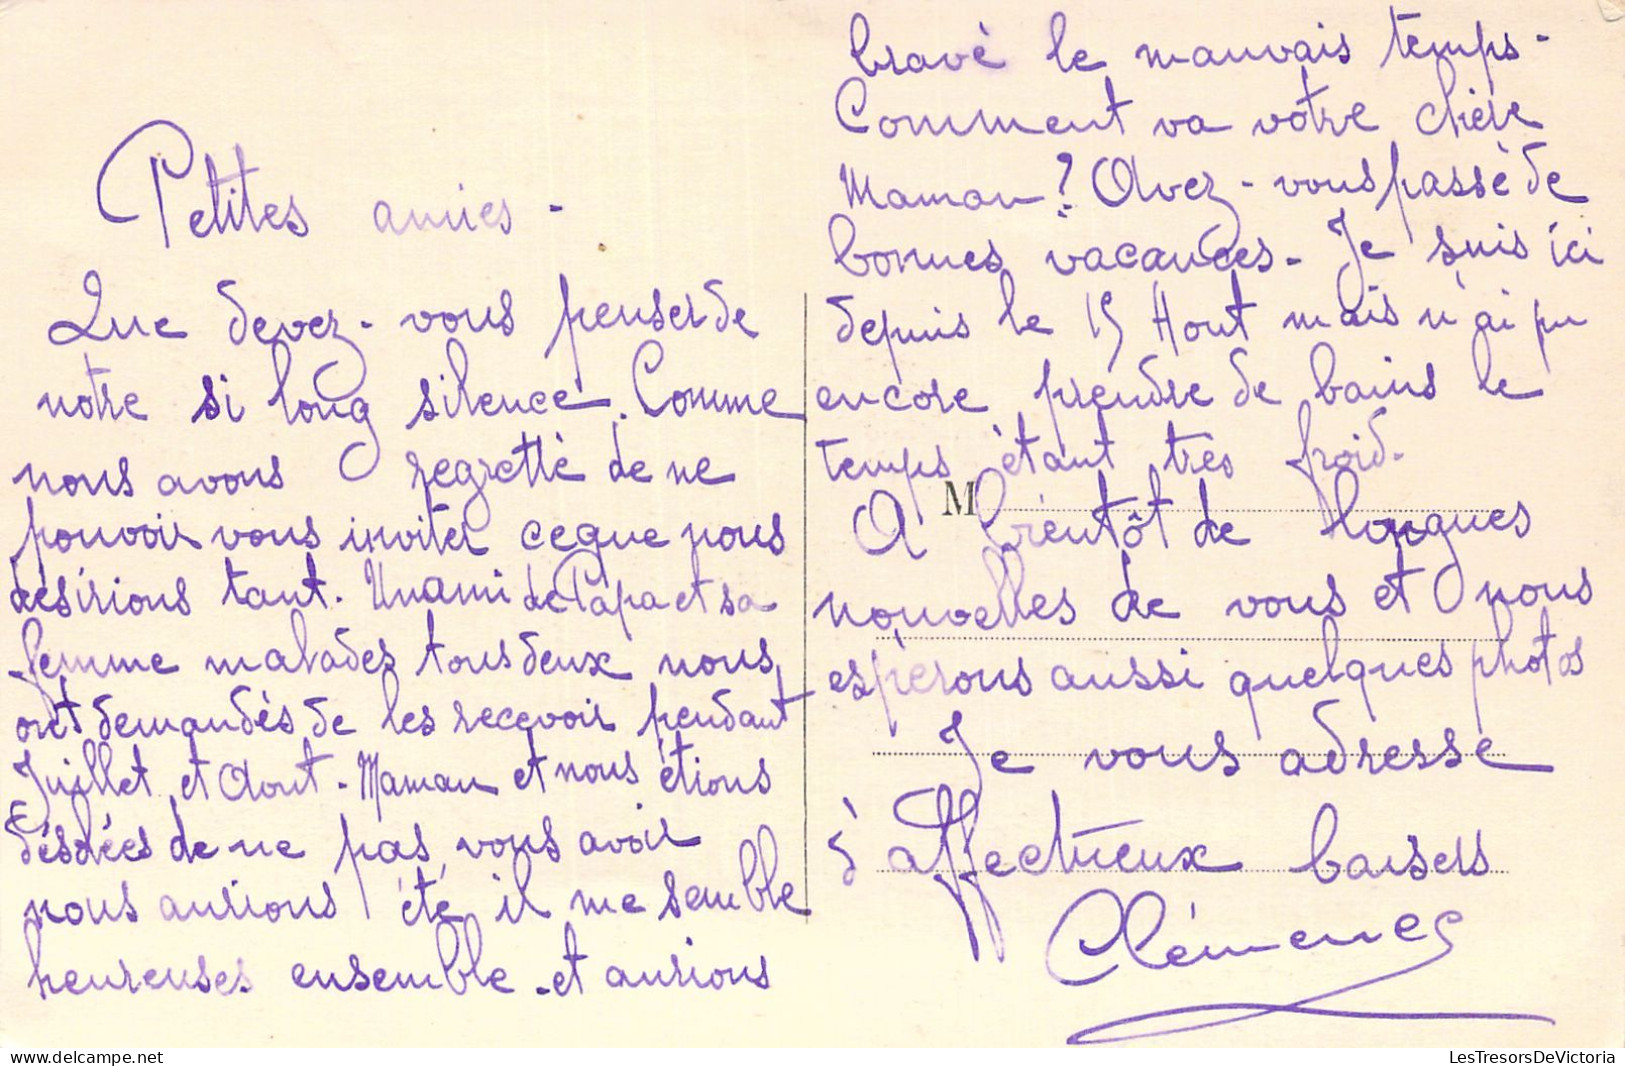 Petites amies -
Que devez-vous penser de
notre si long silence. Comme
nous avons regretté de ne
pouvoir vous inviter ce que nous
désirions tant. Un ami de Papa et sa
femme malades tous deux nous
ont demandés de les recevoir pendant
Juillet et Aout - Maman et nous étions
désolées de ne pas vous avoir
nous aurions été il me semble
heureuses ensemble - et aurions
bravé le mauvais temps -
Comment va votre chère
Maman? Avez-vous passé de
bonnes vacances - Je suis ici
depuis le 15 Aout mais n'ai pu
encore prendre de bains le
temps étant très froid -
M
A bientôt de longues
nouvelles de vous et nous
espérons aussi quelques photos
Je vous adresse
d'affectueux baisers
Clémence
LesTresorsDeVictoria
www.delcampe.net